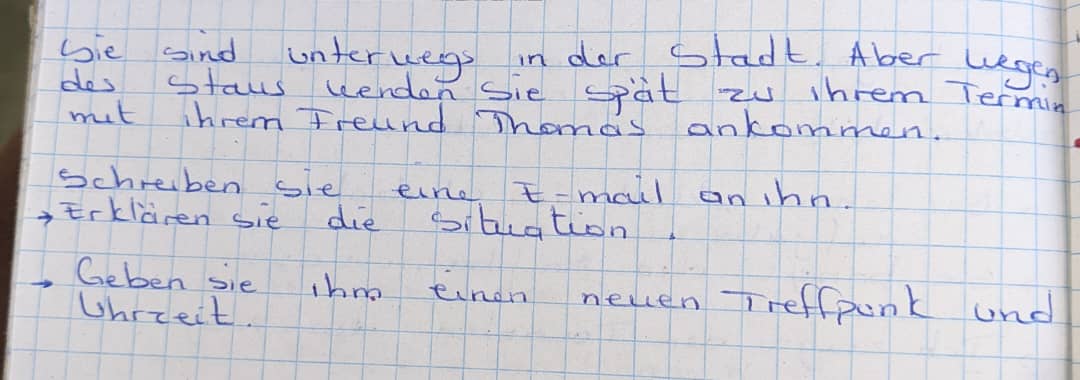 Sie sind unterwegs in der Stadt. Aber wegen
des Staus werden Sie spät zu ihrem Termin
mit ihrem Freund Thomas ankommen.
Schreiben sie eine E-mail an ihn.
→ Erklären sie die Situation.
→ Geben sie ihm einen neuen Treffpunk und
Uhrzeit.